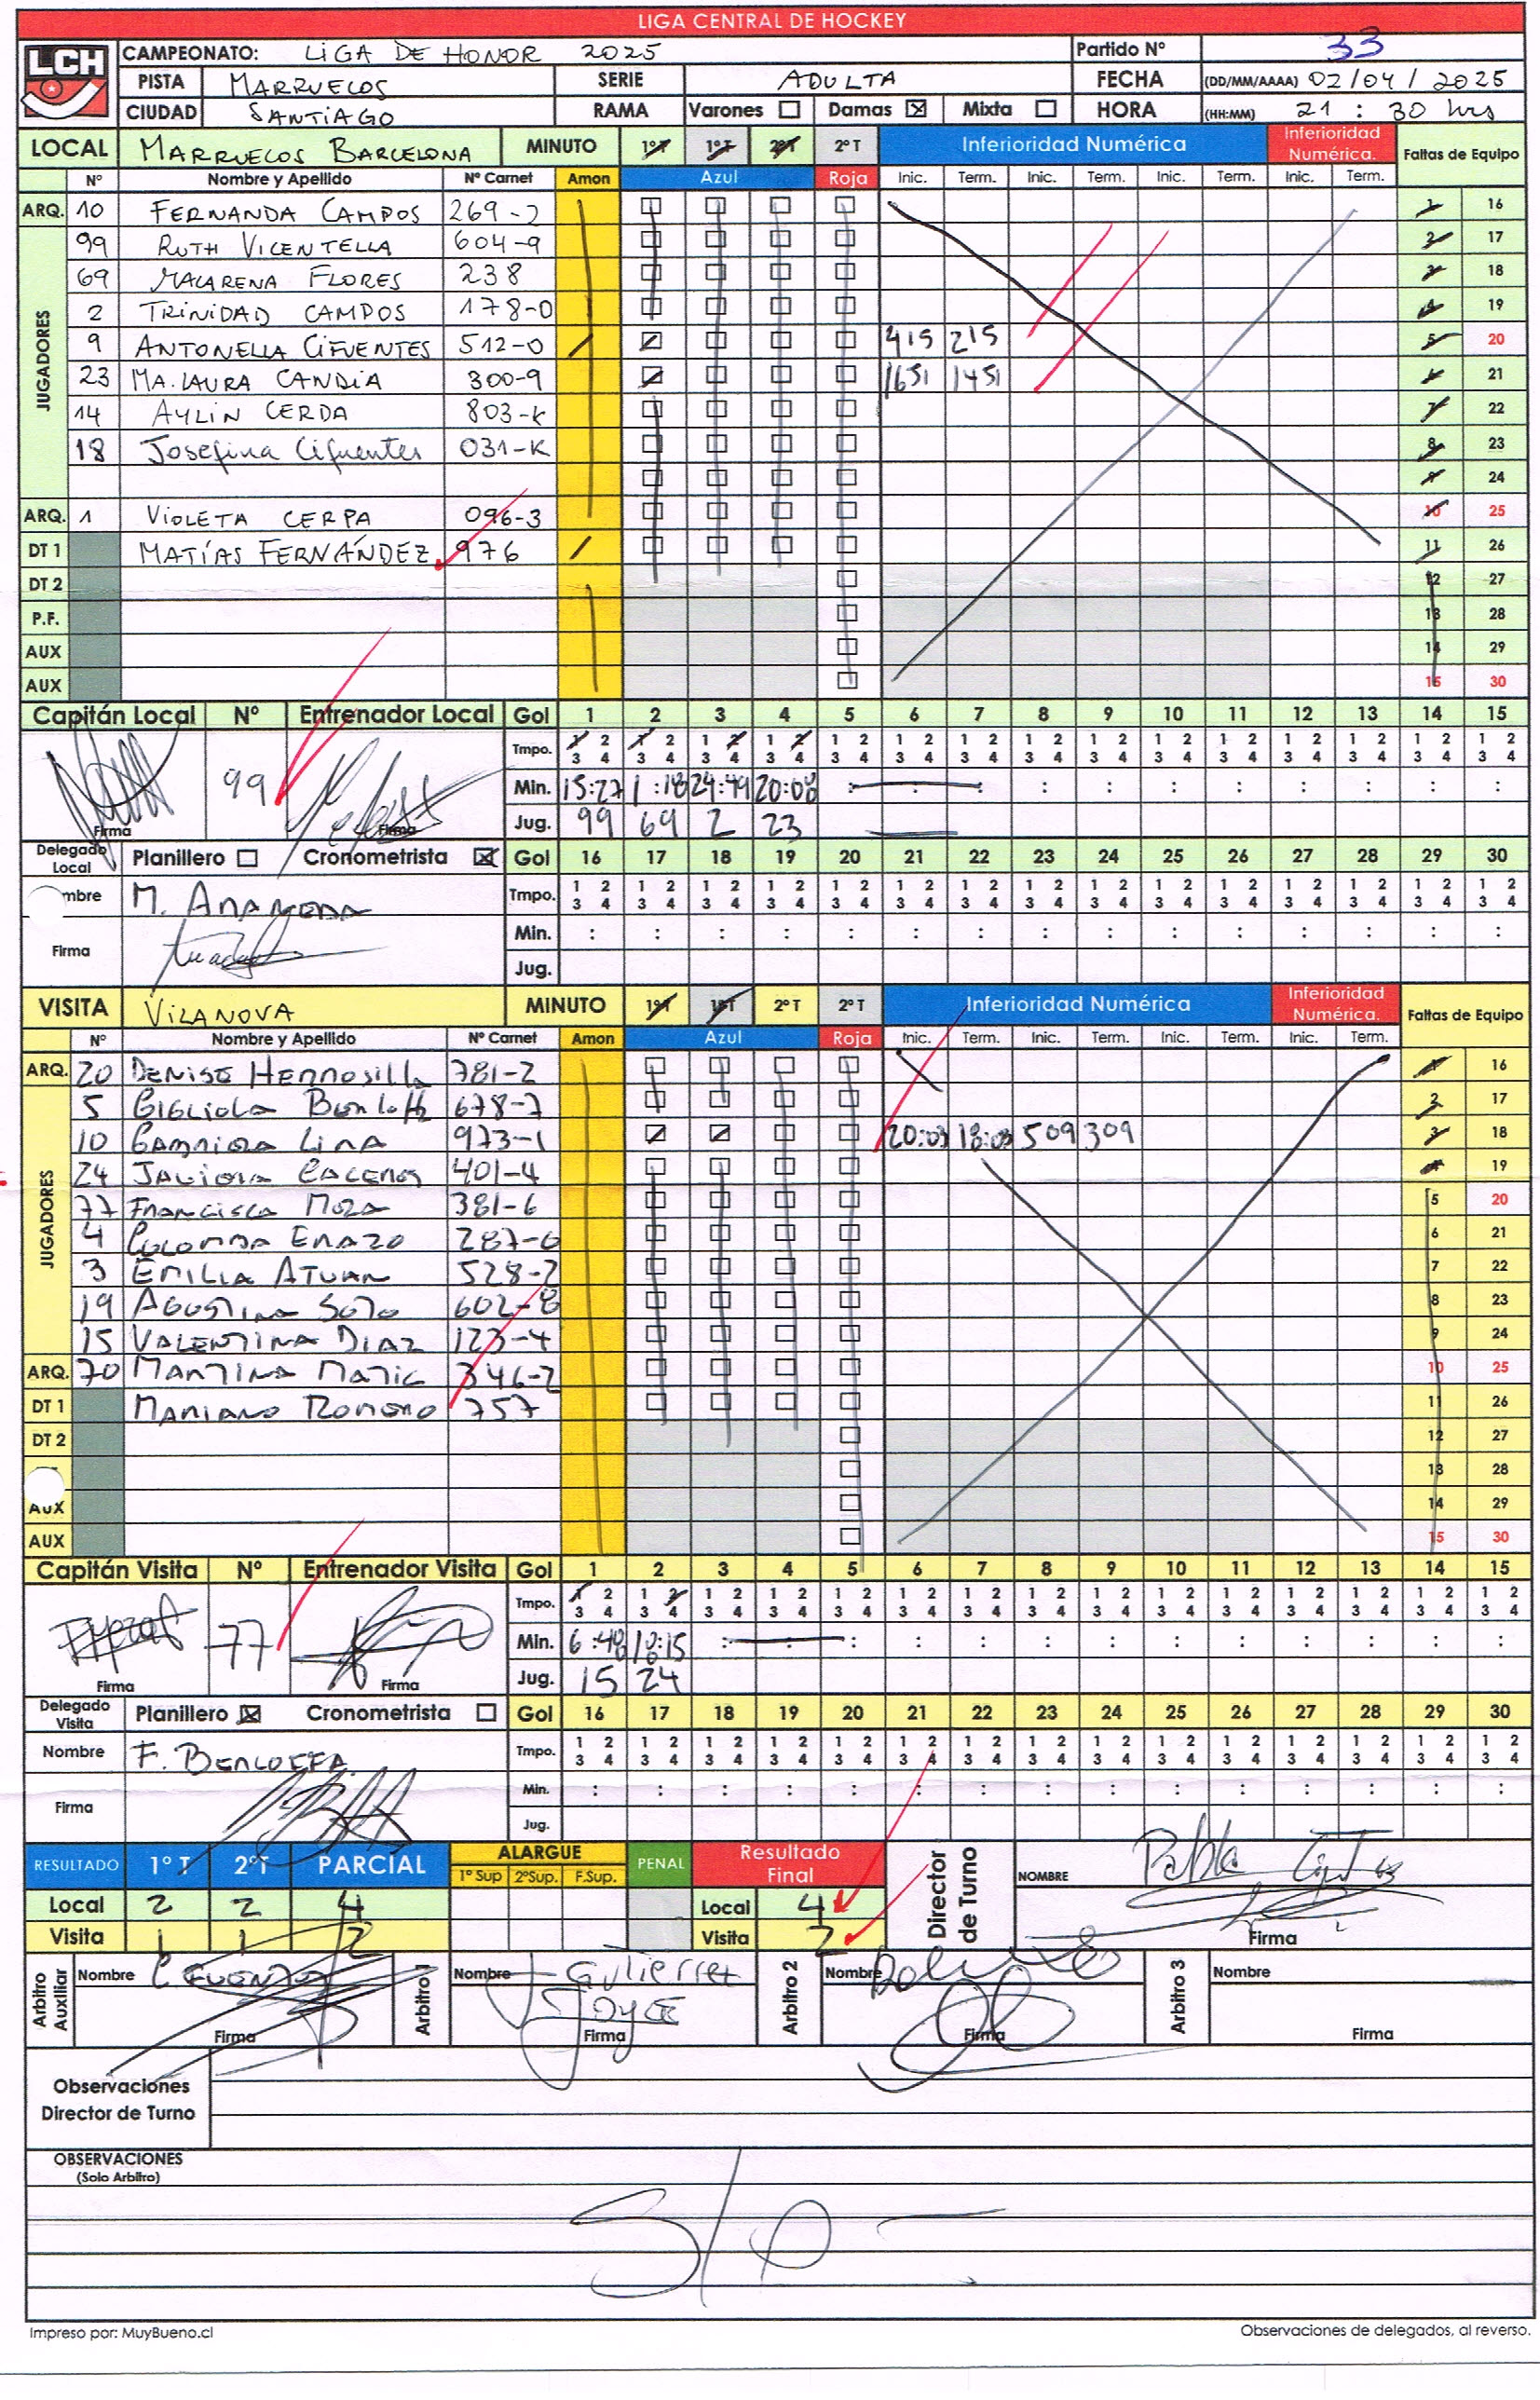 LIGA CENTRAL DE HOCKEY
LCH
CAMPEONATO: LIGA DE HONOR 2025 Partido Nº 33
PISTA MARRUECOS SERIE ADULTA FECHA (DD/MM/AAAA) 02/04/2025
CIUDAD SANTIAGO RAMA Varones Damas ☒ Mixta HORA (HH:MM) 21:30 hrs
LOCAL MARRUECOS BARCELONA MINUTO 1ºT 1ºT 2ºT 2ºT Inferioridad Numérica Inferioridad Numérica. Faltas de Equipo
Nº Nombre y Apellido Nº Carnet Amon Azul Roja Inic. Term. Inic. Term. Inic. Term. Inic. Term.
ARQ. 10 FERNANDA CAMPOS 269-2 1 16
JUGADORES
99 RUTH VICENTELLA 604-9 2 17
69 MACARENA FLORES 238 3 18
2 TRINIDAD CAMPOS 178-0 4 19
9 ANTONELLA CIFUENTES 512-0 415 215 5 20
23 MA. LAURA CANDIA 300-9 1651 1451 6 21
14 AYLIN CERDA 803-K 7 22
18 Josefina Cifuentes 031-K 8 23
9 24
ARQ. 1 VIOLETA CERPA 096-3 10 25
DT 1 MATÍAS FERNÁNDEZ 976 11 26
DT 2 12 27
P.F. 13 28
AUX 14 29
AUX 15 30
Capitán Local Nº Entrenador Local Gol 1 2 3 4 5 6 7 8 9 10 11 12 13 14 15
Tmpo. 1 2 3 4 1 2 3 4 1 2 3 4 1 2 3 4 1 2 3 4 1 2 3 4 1 2 3 4 1 2 3 4 1 2 3 4 1 2 3 4 1 2 3 4 1 2 3 4 1 2 3 4 1 2 3 4 1 2 3 4
99 Min. 15:27 1:18 24:49 20:08 : : : : : : : : : : :
Firma Firma Jug. 99 69 2 23
Delegado Local Planillero Cronometrista ☒ Gol 16 17 18 19 20 21 22 23 24 25 26 27 28 29 30
mbre M. Tmpo. 1 2 3 4 1 2 3 4 1 2 3 4 1 2 3 4 1 2 3 4 1 2 3 4 1 2 3 4 1 2 3 4 1 2 3 4 1 2 3 4 1 2 3 4 1 2 3 4 1 2 3 4 1 2 3 4 1 2 3 4
Firma Min. : : : : : : : : : : : : : : :
Jug.
VISITA VILANOVA MINUTO 1ºT 1ºT 2ºT 2ºT Inferioridad Numérica Inferioridad Numérica. Faltas de Equipo
Nº Nombre y Apellido Nº Carnet Amon Azul Roja Inic. Term. Inic. Term. Inic. Term. Inic. Term.
ARQ. 20 DENISE HERMOSILLA 781-2 1 16
JUGADORES
5 678-7 2 17
10 LIRA 973-1 20:03 18:03 509 309 3 18
24 JAVIERA CACERES 401-4 4 19
77 FRANCISCA MOZA 381-6 5 20
4 COLOMBA ERAZO 287-6 6 21
3 EMILIA ATUAN 528-2 7 22
19 AGUSTINA SOTO 602-8 8 23
15 VALENTINA DIAZ 123-4 9 24
ARQ. 70 MARTINA MATIC 346-2 10 25
DT 1 MARIANO ROMERO 757 11 26
DT 2 12 27
13 28
AUX 14 29
AUX 15 30
Capitán Visita Nº Entrenador Visita Gol 1 2 3 4 5 6 7 8 9 10 11 12 13 14 15
Tmpo. 1 2 3 4 1 2 3 4 1 2 3 4 1 2 3 4 1 2 3 4 1 2 3 4 1 2 3 4 1 2 3 4 1 2 3 4 1 2 3 4 1 2 3 4 1 2 3 4 1 2 3 4 1 2 3 4 1 2 3 4
77 Min. 6:48 18:15 : : : : : : : : : : : : :
Firma Firma Jug. 15 24
Delegado Visita Planillero ☒ Cronometrista Gol 16 17 18 19 20 21 22 23 24 25 26 27 28 29 30
Nombre F. BENLOEFA Tmpo. 1 2 3 4 1 2 3 4 1 2 3 4 1 2 3 4 1 2 3 4 1 2 3 4 1 2 3 4 1 2 3 4 1 2 3 4 1 2 3 4 1 2 3 4 1 2 3 4 1 2 3 4 1 2 3 4 1 2 3 4
Firma Min. : : : : : : : : : : : : : : :
Jug.
RESULTADO 1ºT 2ºT PARCIAL ALARGUE 1º Sup 2ºSup. F.Sup. PENAL Resultado Final Director de Turno NOMBRE Pablo
Local 2 2 4 Local 4
Visita 1 1 2 Visita 2 Firma
Arbitro Auxiliar Nombre C FUENTES Arbitro 1 Nombre J Gutierrez Arbitro 2 Nombre Arbitro 3 Nombre
JOYCE
Firma Firma Firma Firma
Observaciones
Director de Turno
OBSERVACIONES
(Solo Arbitro)
S/O -
Impreso por: MuyBueno.cl Observaciones de delegados, al reverso.